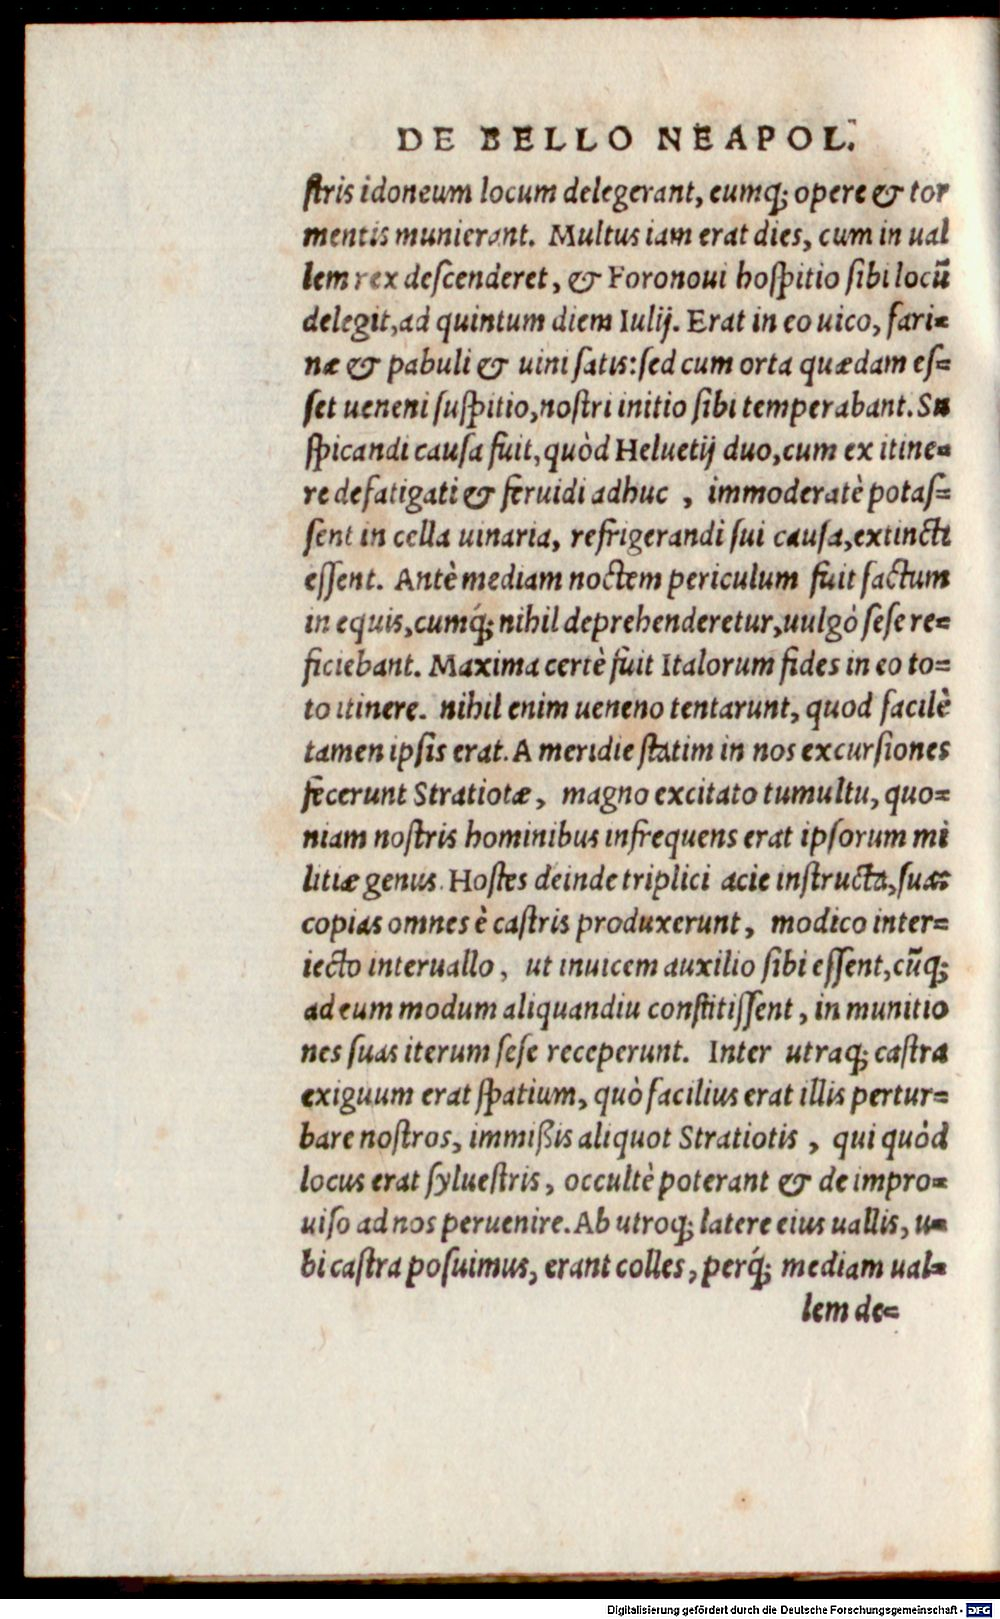 DE BELLO NEAPOL.
ſtris idoneum locum delegerant, eumq́; opere & tor
mentis munierant. Multus iam erat dies, cum in ual
lem rex deſcenderet, & Foronoui hoſpitio ſibi locū
delegit, ad quintum diem Iulij. Erat in eo uico, fari=
næ & pabuli & uini ſatis: ſed cum orta quædam eſ=
ſet ueneni ſuſpitio, noſtri initio ſibi temperabant. Su
ſpicandi cauſa fuit, quòd Heluetij duo, cum ex itine=
re defatigati & feruidi adhuc , immoderatè potaſ=
ſent in cella uinaria, refrigerandi ſui cauſa, extincti
eſſent. Antè mediam noctem periculum fuit factum
in equis, cumq́; nihil deprehenderetur, uulgò ſeſe re=
ficiebant. Maxima certè fuit Italorum fides in eo to=
to itinere. nihil enim ueneno tentarunt, quod facilè
tamen ipſis erat. A meridie ſtatim in nos excurſiones
fecerunt Stratiotæ, magno excitato tumultu, quo=
niam noſtris hominibus infrequens erat ipſorum mi
litiæ genus. Hoſtes deinde triplici acie inſtructa, ſuas
copias omnes è caſtris produxerunt, modico inter=
iecto interuallo, ut inuicem auxilio ſibi eſſent, cūq;
ad eum modum aliquandiu conſtitiſſent, in munitio
nes ſuas iterum ſeſe receperunt. Inter utraq; caſtra
exiguum erat ſpatium, quò facilius erat illis pertur=
bare noſtros, immißis aliquot Stratiotis , qui quòd
locus erat ſylueſtris, occultè poterant & de impro=
uiſo ad nos peruenire. Ab utroq; latere eius uallis, u=
bi caſtra poſuimus, erant colles, perq́; mediam ual=
lem de=
Digitalisierung gefördert durch die Deutsche Forschungsgemeinschaft - DFG